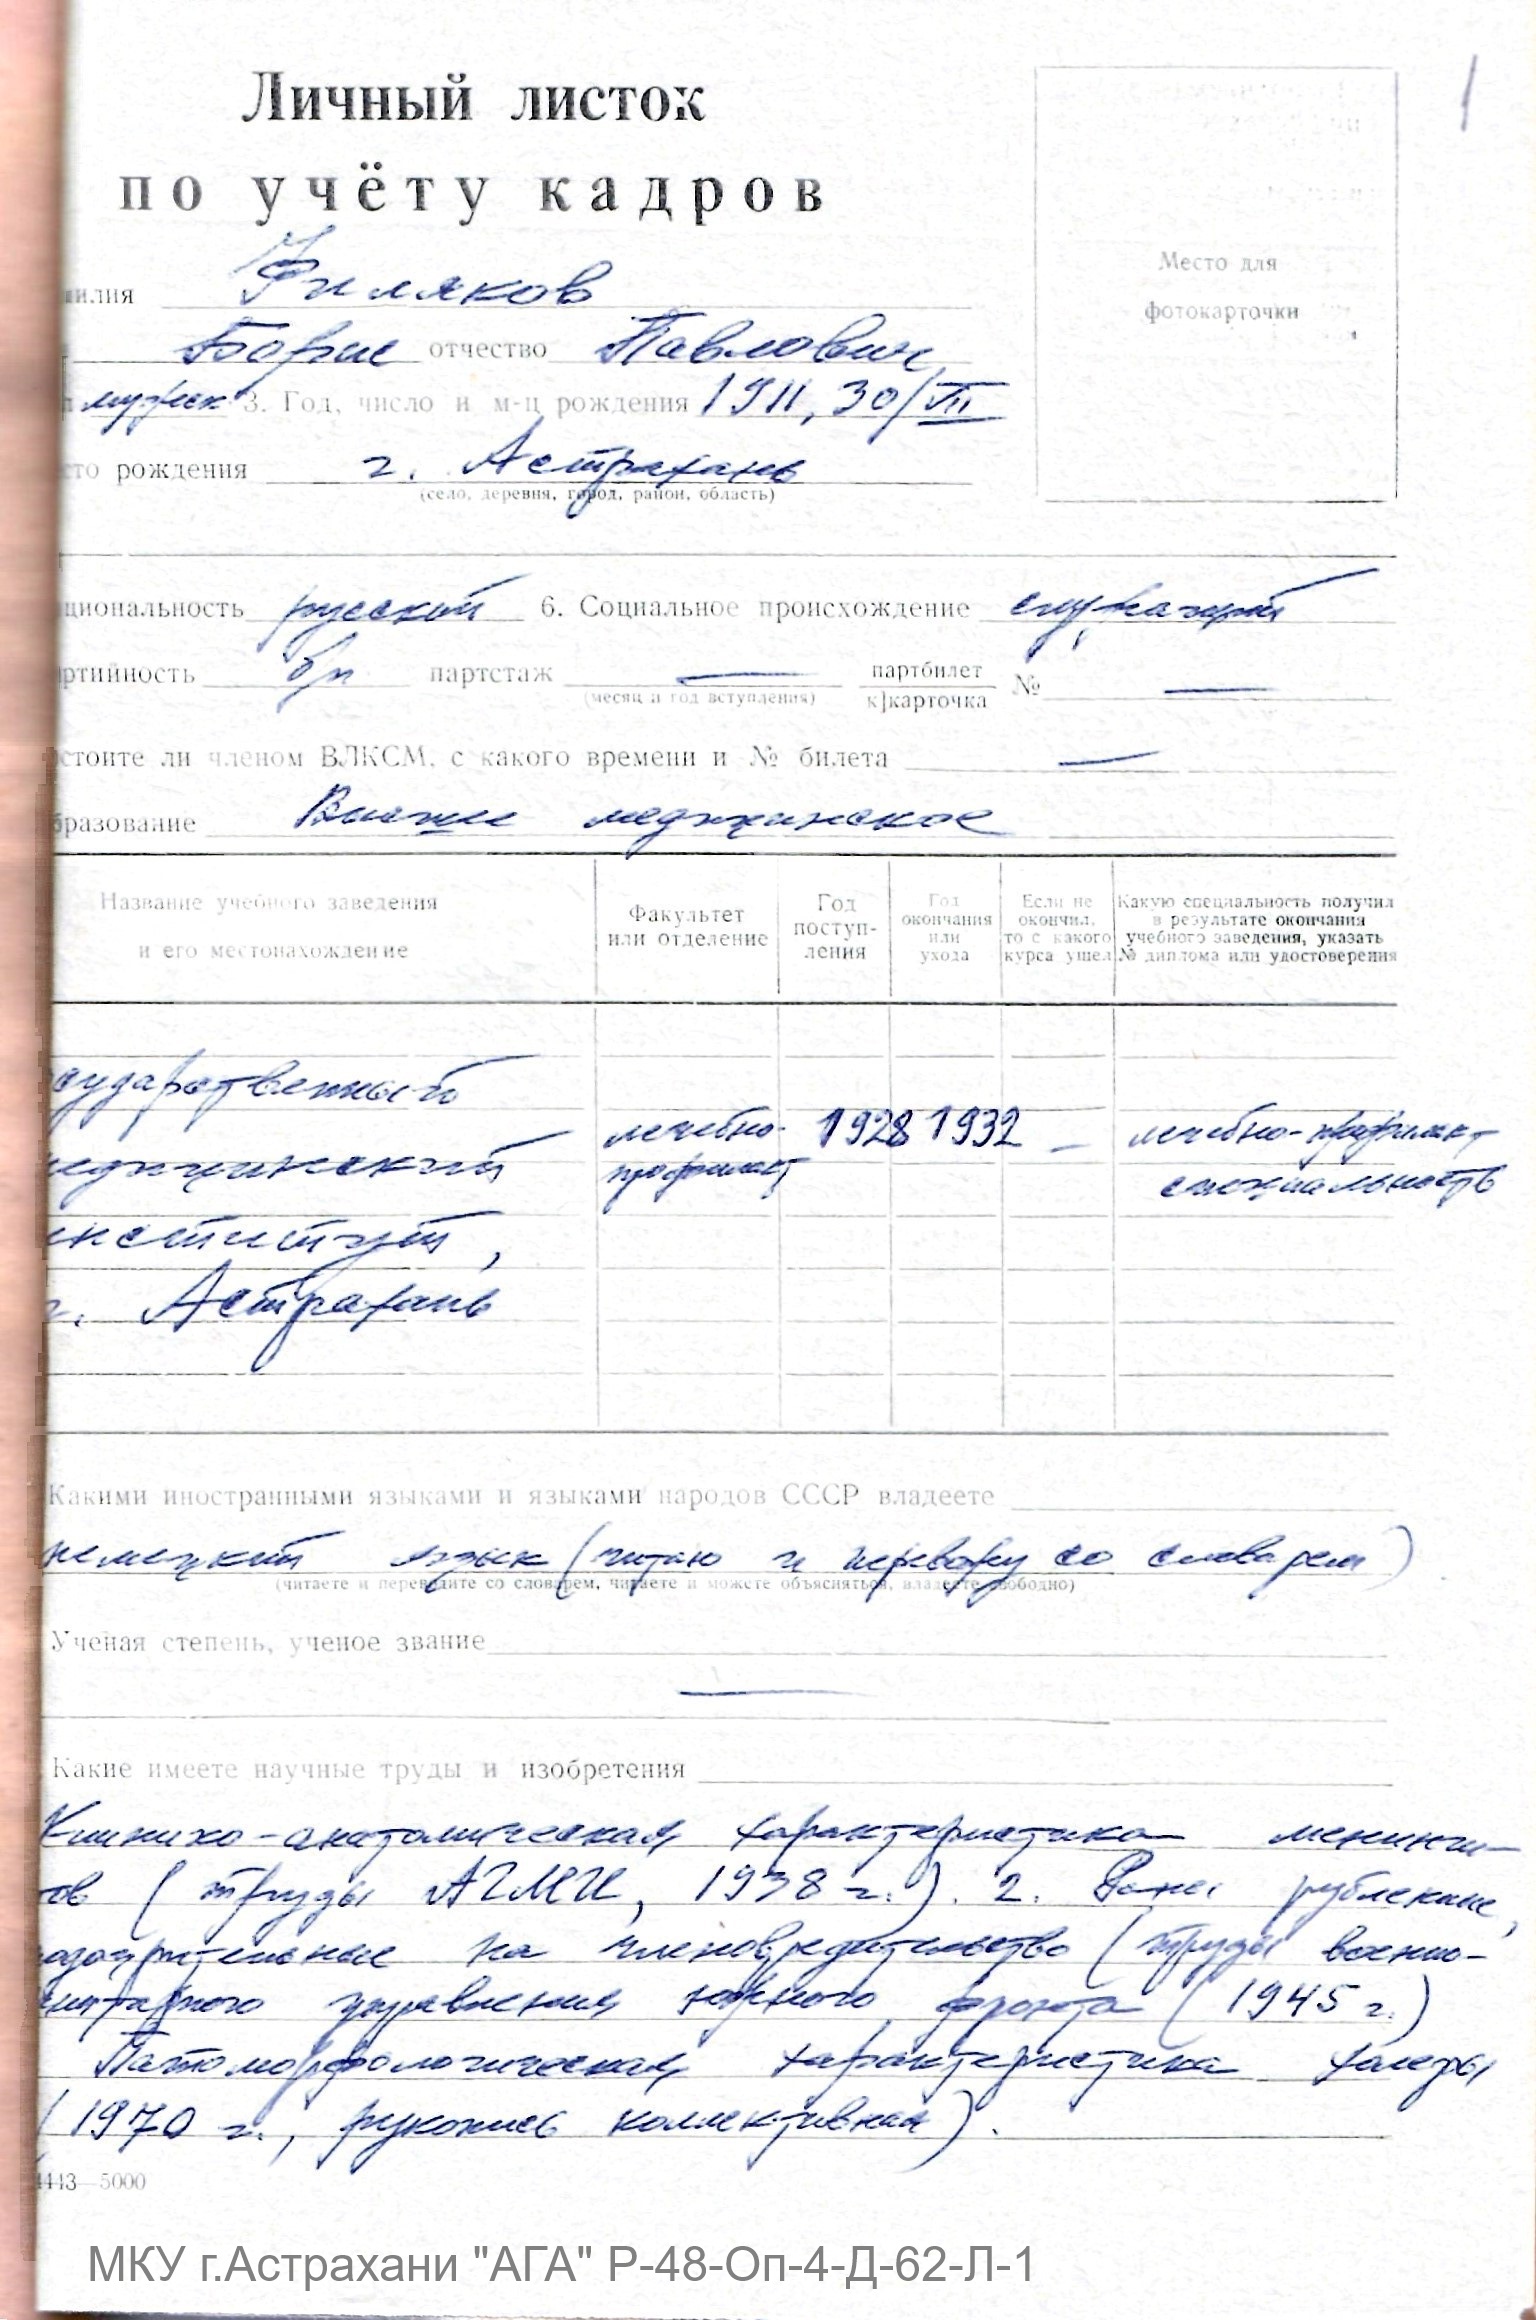 1
Личный листок
по учёту кадров
Место для
фотокарточки
милия Филяков
Борис отчество Павлович
мужск 3. Год, число и м-ц рождения 1911, 30/VII
сто рождения г. Астрахань
(село, деревня, город, район, область)
циональность русский 6. Социальное происхождение служащий
ртийность б/п партстаж — партбилет
(месяц и год вступления) к]карточка № —
стоите ли членом ВЛКСМ, с какого времени и № билета —
бразование Высшее медицинское
Название учебного заведения
и его местонахождение
Факультет
или отделение
Год
поступ-
ления
Год
окончания
или
ухода
Если не
окончил,
то с какого
курса ушел
Какую специальность получил
в результате окончания
учебного заведения, указать
№ диплома или удостоверения
осударственный
медицинский
институт,
г. Астрахань
лечебно-
профилакт
1928 1932 —
лечебно-профилакт
специальность
Какими иностранными языками и языками народов СССР владеете
немецкий язык (читаю и перевожу со словарем)
(читаете и переводите со словарем, читаете и можете объясняться, владеете свободно)
Ученая степень, ученое звание
—
Какие имеете научные труды и изобретения
Клинико-анатомическая характеристика менинги-
тов (труды АГМИ, 1938 г.). 2. Раны рубленые,
подозрительные на членовредительство (труды военно-
санитарного управления южного фронта (1945 г.)
Патоморфологическая характеристика холеры
(1970 г., рукопись коллективная).
4443—5000
МКУ г.Астрахани "АГА" Р-48-Оп-4-Д-62-Л-1